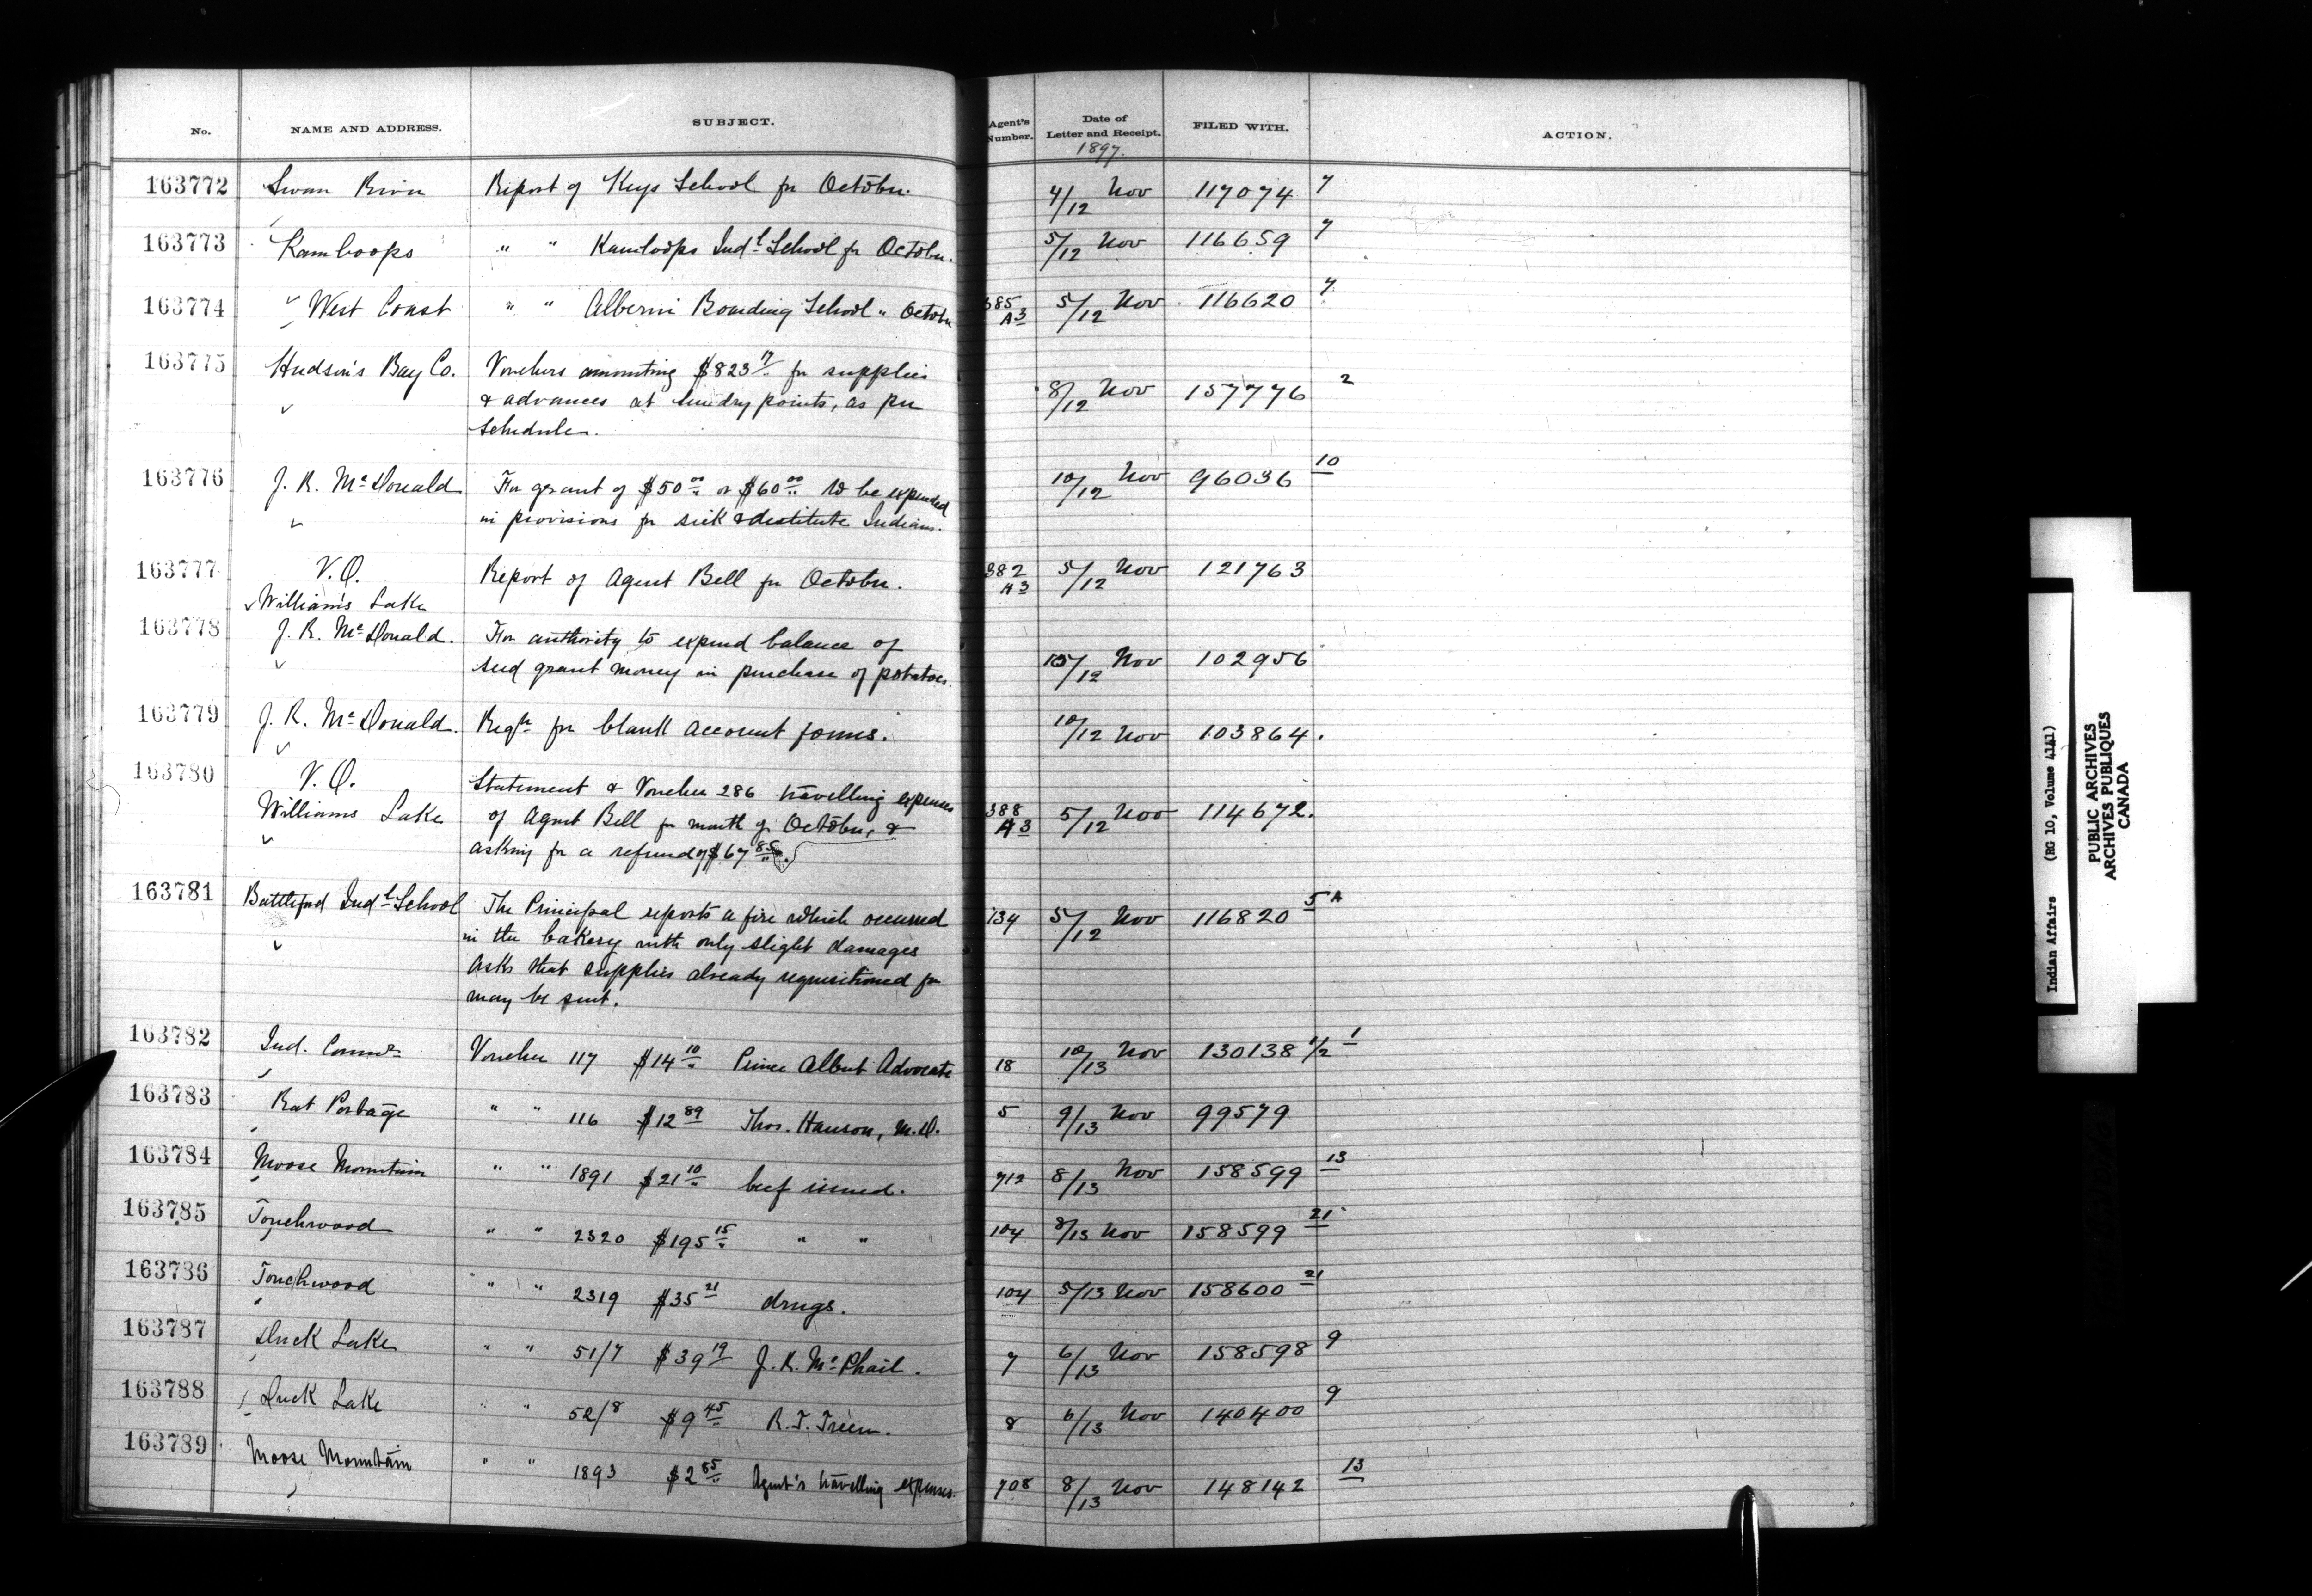 No. NAME AND ADDRESS. SUBJECT. Agent's Number. Date of Letter and Receipt. FILED WITH. ACTION.
1897.
163772 Swan River Report of Keys School for October. 4/12 Nov 117074 7
163773 Kamloops " " Kamloops Indl School for October. 5/12 Nov 116659 7
163774 West Coast " " Alberni Boarding School " October 385 A3 5/12 Nov 116620 7
163775 Hudson's Bay Co. Vouchers amounting $823 17 for supplies
& advances at sundry points, as per 8/12 Nov 157776 2
schedule.
163776 J. R. McDonald For grant of $50 00 or $60 00 to be expended 10/12 Nov 96036 10
in provisions for sick & destitute Indians.
163777 V.O. Report of Agent Bell for October. 382 A3 5/12 Nov 121763
Williams Lake
163778 J. R. McDonald. For authority to expend balance of
seed grant money in purchase of potatoes. 10/12 Nov 102956
163779 J. R. McDonald. Reqn for blank account forms. 10/12 Nov 103864.
163780 V.O. Statement & Voucher 286 travelling expenses
Williams Lake of Agent Bell for month of October, & 388 A3 5/12 Nov 114672.
asking for a refund of $67 85.
163781 Battleford Indl School The Principal reports a fire which occurred 134 5/12 Nov 116820 5A
in the bakery with only slight damages
Asks that supplies already requisitioned for
may be sent.
163782 Ind. Commr Voucher 117 $14 10 Prince Albert Advocate 18 10/13 Nov 130138 1/2 1
163783 Rat Portage " " 116 $12 89 Thos. Hanson, M.D. 5 9/13 Nov 99579
163784 Moose Mountain " " 1891 $21 10 beef issued. 712 8/13 Nov 158599 13
163785 Touchwood " " 2320 $195 15 " " 104 8/13 Nov 158599 21
163786 Touchwood " " 2319 $35 21 drugs. 104 5/13 Nov 158600 21
163787 Duck Lake " " 51/7 $39 19 J. K. McPhail. 7 6/13 Nov 158598 9
163788 Duck Lake " " 52/8 $9 45 R. T. 8 6/13 Nov 140400 9
163789 Moose Mountain " " 1893 $2 85 Agent's travelling expenses. 708 8/13 Nov 148142 13
Indian Affairs (RG 10, Volume 4141)
PUBLIC ARCHIVES
ARCHIVES PUBLIQUES
CANADA